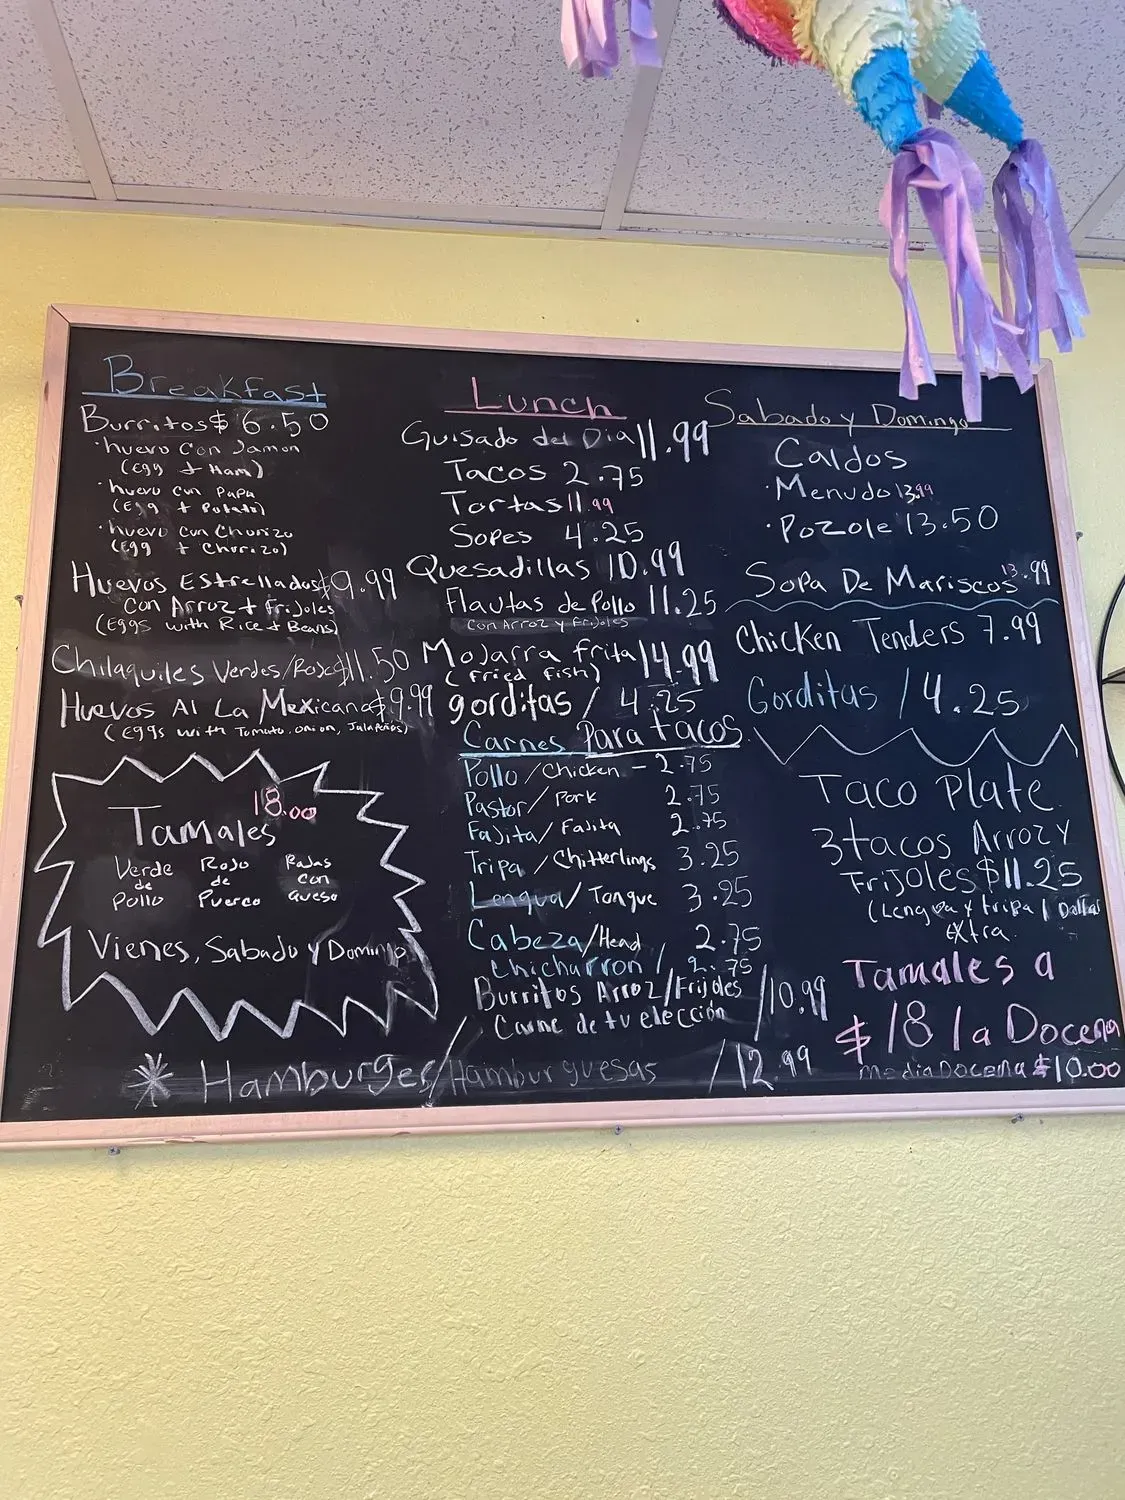 Breakfast
Burritos $6.50
• huevo con Jamon
(Egg + Ham)
• huevo con Papa
(Egg + Potato)
• huevo con Chorizo
(Egg + Chorizo)
Huevos Estrellados $9.99
Con Arroz + Frijoles
(Eggs with Rice + Beans)
Chilaquiles Verdes/Rojos $11.50
Huevos Al La Mexicana $9.99
(Eggs with Tomato, onion, Jalapeños)
18.00
Tamales
Verde de Pollo
Rojo de Puerco
Rajas con Queso
Vienes, Sabado y Domingo
Lunch
Guisado del Dia 11.99
Tacos 2.75
Tortas 11.99
Sopes 4.25
Quesadillas 10.99
Flautas de Pollo 11.25
con Arroz y Frijoles
Mojarra frita 14.99
(fried fish)
gorditas / 4.25
Carnes Para tacos
Pollo / Chicken - 2.75
Pastor / Pork 2.75
Fajita / Fajita 2.75
Tripa / Chitterlings 3.25
Lengua / Tongue 3.25
Cabeza / Head 2.75
Chicharron / 2.75
Burritos Arroz / Frijoles / 10.99
Carne de tu elección
* Hamburges / Hamburguesas / 12.99
Sabado y Domingo
Caldos
• Menudo 13.99
• Pozole 13.50
Sopa De Mariscos 13.99
Chicken Tenders 7.99
Gorditas / 4.25
Taco Plate
3 tacos Arroz y
Frijoles $11.25
(Lengua y tripa 1 Dollar
extra
Tamales a
$18 la Docena
media Docena $10.00